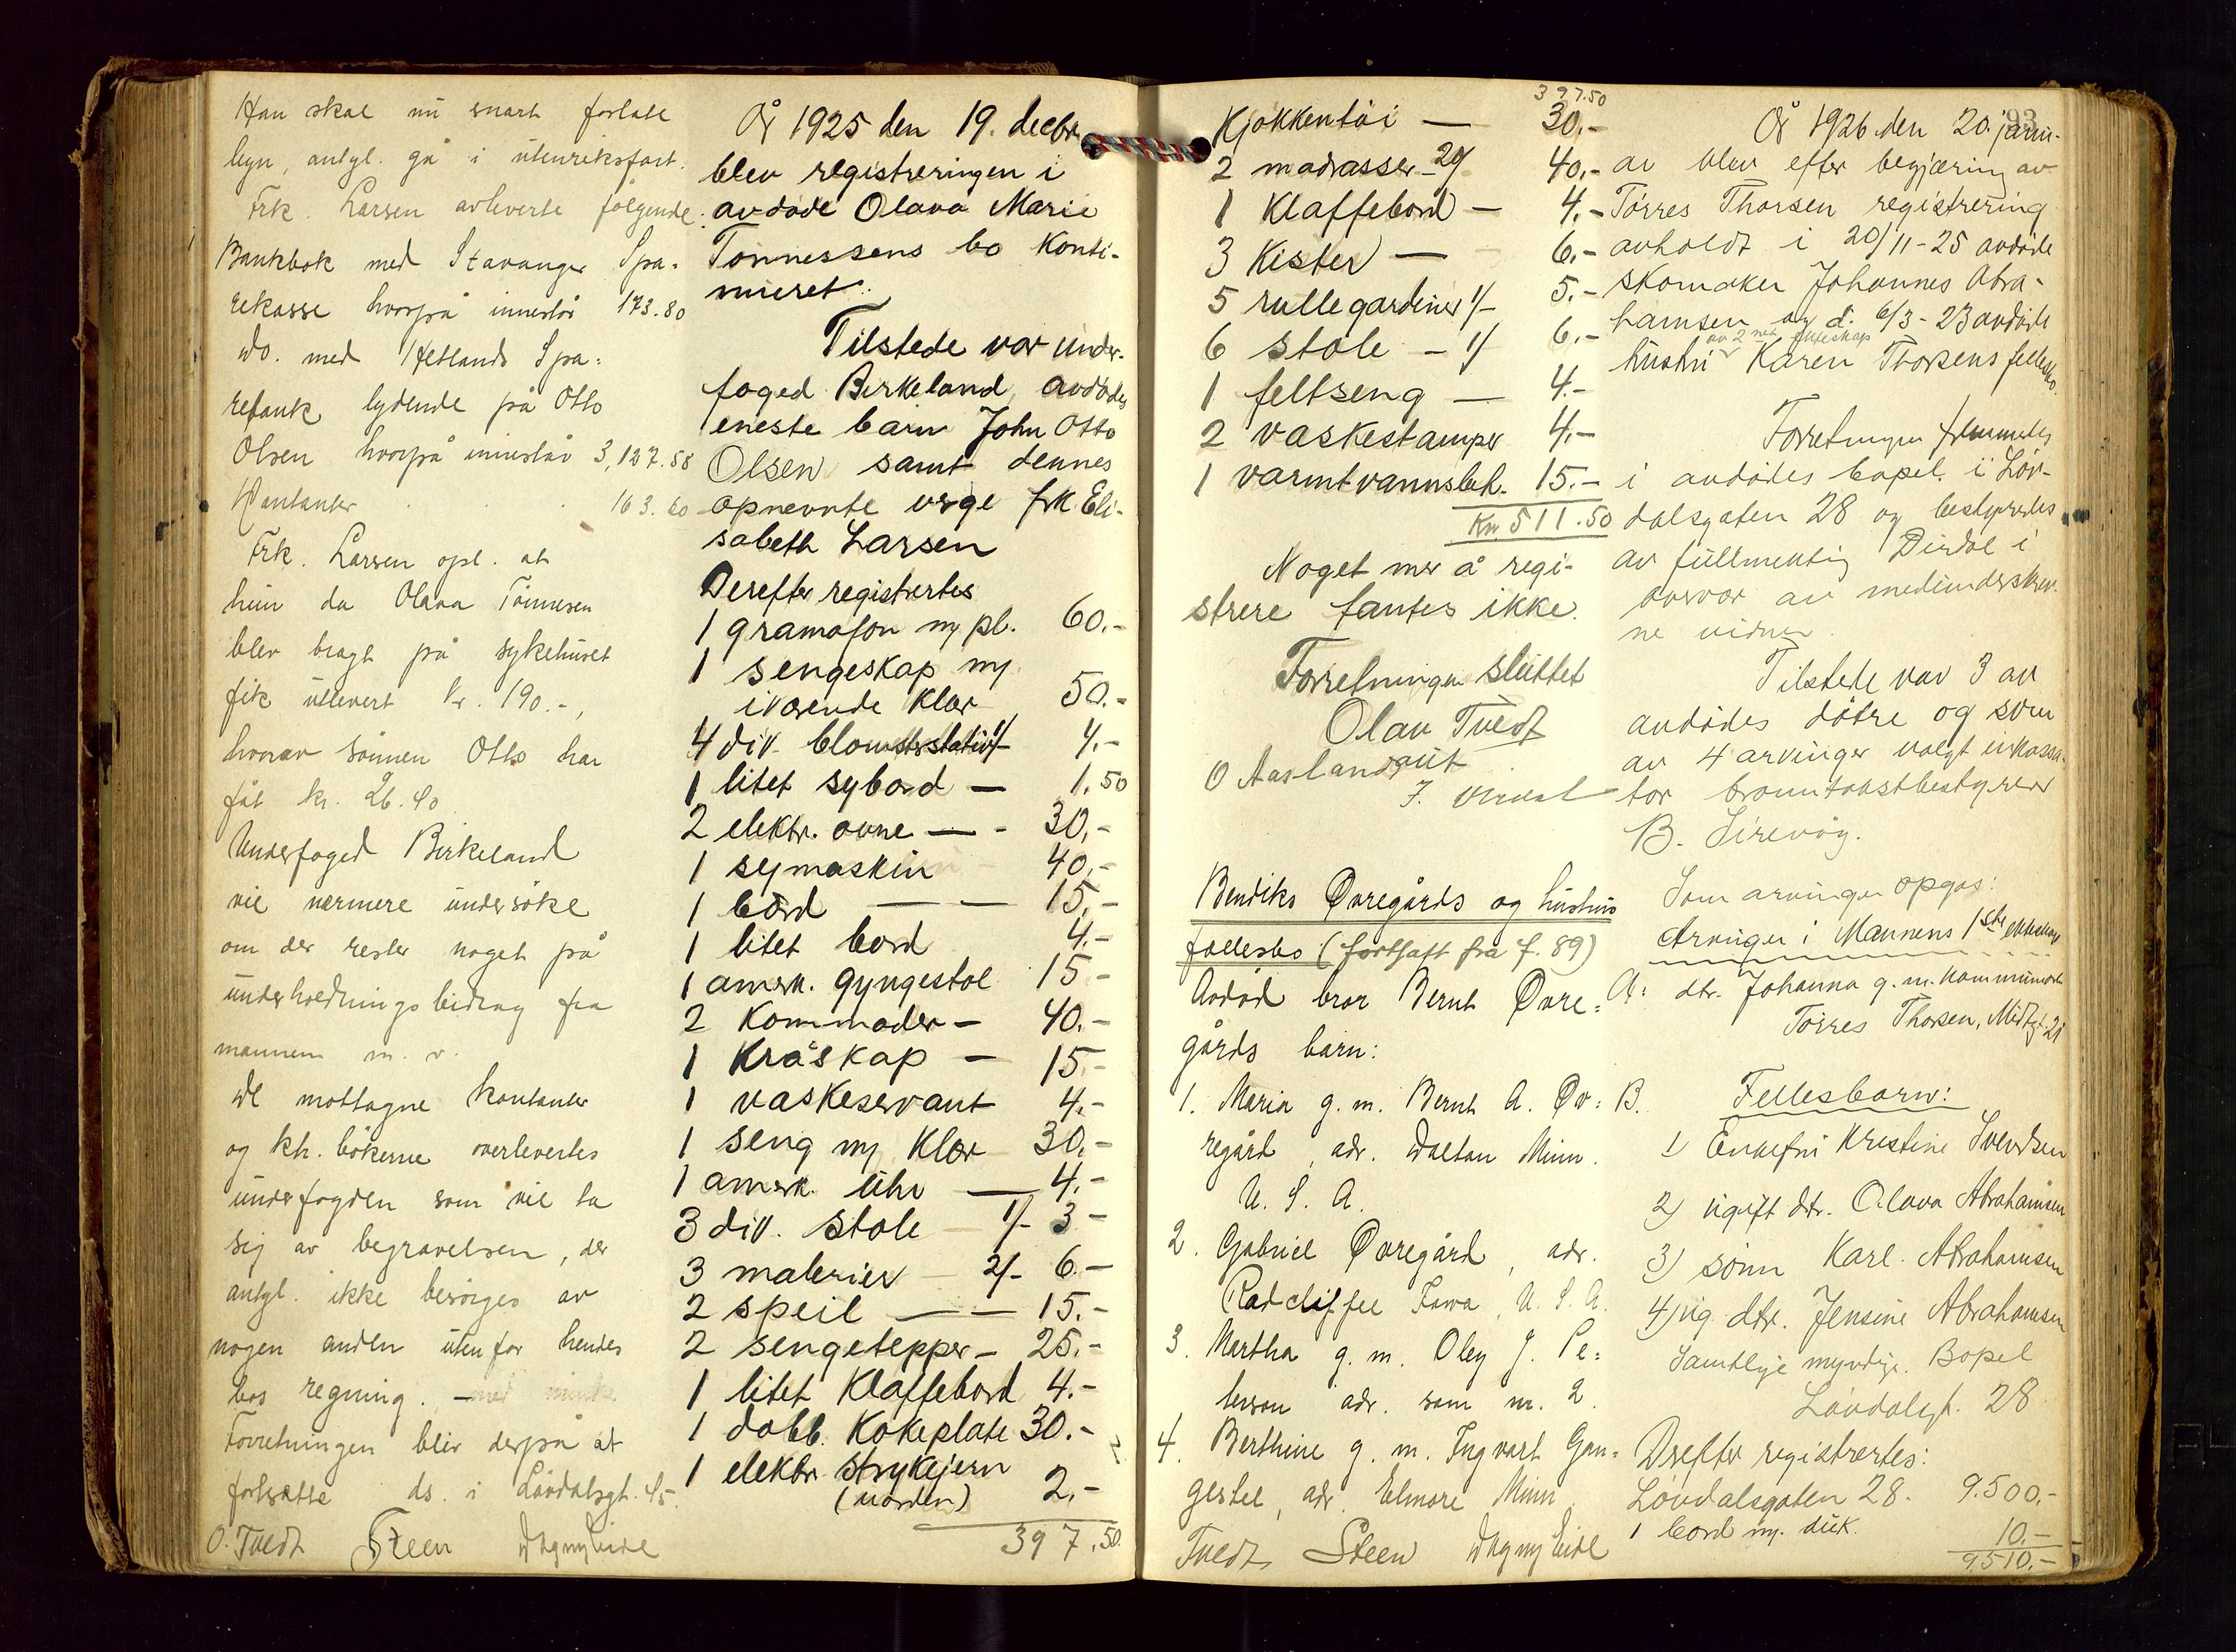 Han skal nu snart forlate
byn, antgl. gå i utenriksfart.
Frk. Larsen avleverte følgende:
Bankbok med Stavanger Spa=
rekasse hvorpå innestår 173.80
do. med Hetlands Spa=
rebank lydende på Otto
Olsen hvorpå innestår 3,127.58
Kontanter 163.60
Frk. Larsen opl. at
hun da Olava Tønnesen
blev bragt på sykehuset
fik utlevert kr. 190.-,
hvorav sønnen Otto har
fåt kr. 26.40
Underfoged Birkeland
vil nærmere undersøke
om der rester noget på
underholdningsbidrag fra
mannen m. v.
De mottagne kontanter
og bk. bökerne overlevertes
underfogden som vil ta
sig av begravelsen, der
antgl. ikke besörges av
nogen anden utenfor hendes
bos regning.
Forretningen blir derpå at
fortsætte ds. i Lövdalsgt. 45.
O. Tvedt Steen Dagny Eide
År 1925 den 19. decbr.
blev registreringen i
avdöde Olava Marie
Tönnessens bo konti-
nueret.
Tilstede var under-
foged Birkeland, avdödes
eneste barn John Otto
Olsen samt dennes
opnevnte verge frk Eli-
sabeth Larsen
Derefter registrertes
1 gramofon m pl. 60.-
1 sengeskap m
ivärende klær 50.-
4 div. blomsterstativ 1/- 4.-
1 litet sybord — 1.50
2 elektr. ovne — - 30.-
1 symaskin - 40.-
1 bord — — 15.-
1 litet bord 4.-
1 amerk. gyngestol 15-
2 Kommoder - 40.-
1 Kråskap - 15.-
1 vaskeservant 4.-
1 seng m. Klær 30.-
1 amerk. uhr — 4.-
3 div. stole 1/- 3-
3 malerier 2/- 6.-
2 speil — — 15.-
2 sengetepper - 25.-
1 litet Klaffebord 4.-
1 dobb. Kokeplate 30.-
1 elektr. strykejern
(uorden) 2.-
397.50
397.50
Kjökkentöi — 30.-
2 madrasser 20/- 40.-
1 Klaffebord - 4.-
3 Kister — 6.-
5 rullegardiner 1/- 5.-
6 stole - 1/ 6.-
1 feltseng — 4.-
2 vaskestamper 4.-
1 varmtvannsbeh. 15.-
Kr 511.50
Noget mer å regi-
strere fantes ikke.
Forretningen sluttet
Olav Tvedt
O Aaslandsnut
Bendiks Øvregårds og hustrus
fællesbo (fortsatt fra f. 89)
Avdød bror Bernt Øvre=
gårds barn:
1. Maria g. m. Bernt A. Øv=
regård, adr. Daltan Minn.
U. S. A.
2. Gabriel Øvregård, adr.
Radcliffee Iowa, U. S. A.
3. Martha g. m. Oley J. Pe=
terson adr. som nr. 2.
4. Berthine g. m. Ingvart Gan=
gestee, adr. Elmore Minn
Tvedt Steen Dagny Eide
93
År 1926 den 20. janu-
ar blev efter begjæring av
Törres Thorsen registrering
avholdt i 20/11-25 avdöde
skomaker Johannes Abra-
hamsen og d. 6/3-23 avdöde
av 2net ekteskap
hustru Karen Thorsens fellesbo.
Forretningen fremmedes
i avdödes bopel i Löv-
dalsgaten 28 og bestyredes
av fullmektig Dirdal i
overvær av medunderskrev-
ne vidner.
Tilstede var 3 av
avdödes dötre og som
av 4 arvinger valgt inkassa-
tor branntakstbestyrer
B. Sirevåg.
Som arvinger opgas:
Arvinger i Mannens 1ste ekteskap
A: dtr. Johanna g. m. kommunearb
Törres Thorsen, Midtgt. 21
B. Fellesbarn:
1) Enkefru Kristine Svendsen
2) ugift dtr. Olava Abrahamsen
3) sönn Karl Abrahamsen
4) ug. dtr. Jensine Abrahamsen
Samtlige myndige. Bopel
Lövdalsgt. 28
Derefter registrertes:
Lövdalsgaten 28. 9.500.-
1 bord m. duk. 10.-
9510.-